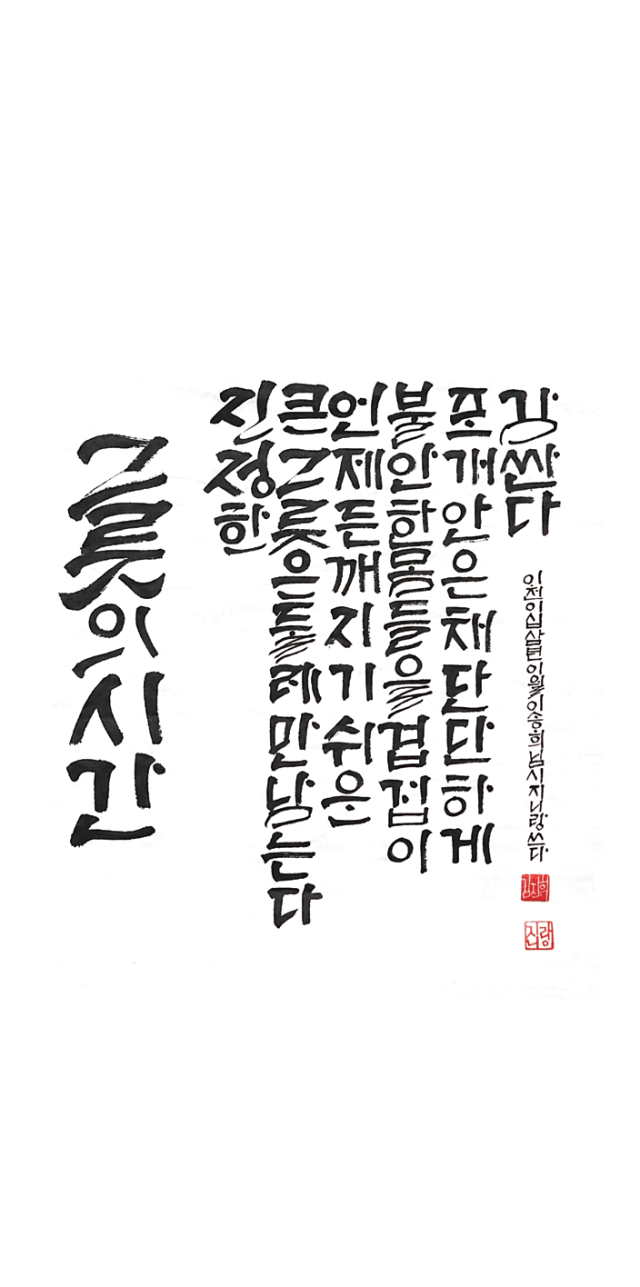 그릇의시간
진정한
큰그릇은둘레만남는다
언제든깨지기쉬은
불안한몸들을겹겹이
포개안은채단단하게
감싼다
이천이십삼년이월이송희님시지니랑쓰다